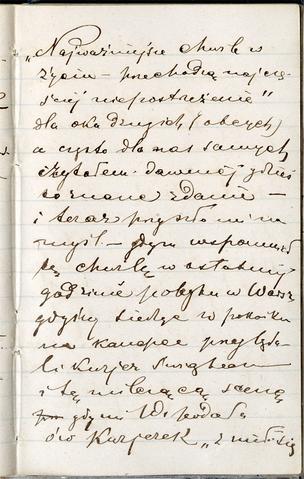 „Najważniejsze chwile w
życiu – przechodzą najczę-
ściej niepostrzeżenie"
dla oka drugich (obcych)
a często dla nas samych,
czytałem dawniej gdzieś
to znane zdanie –
i teraz przyszło mi na
myśl – gdym wspomniał
tę chwilę w ostatniej
godzinie pobytu w Warsz
gdyśmy siedząc w pokoiku
na kanapce przegląda-
li Kurjer Świąteczn
i tę milczącą scenę
gdy mi W. podała
ów Kurjerek „z